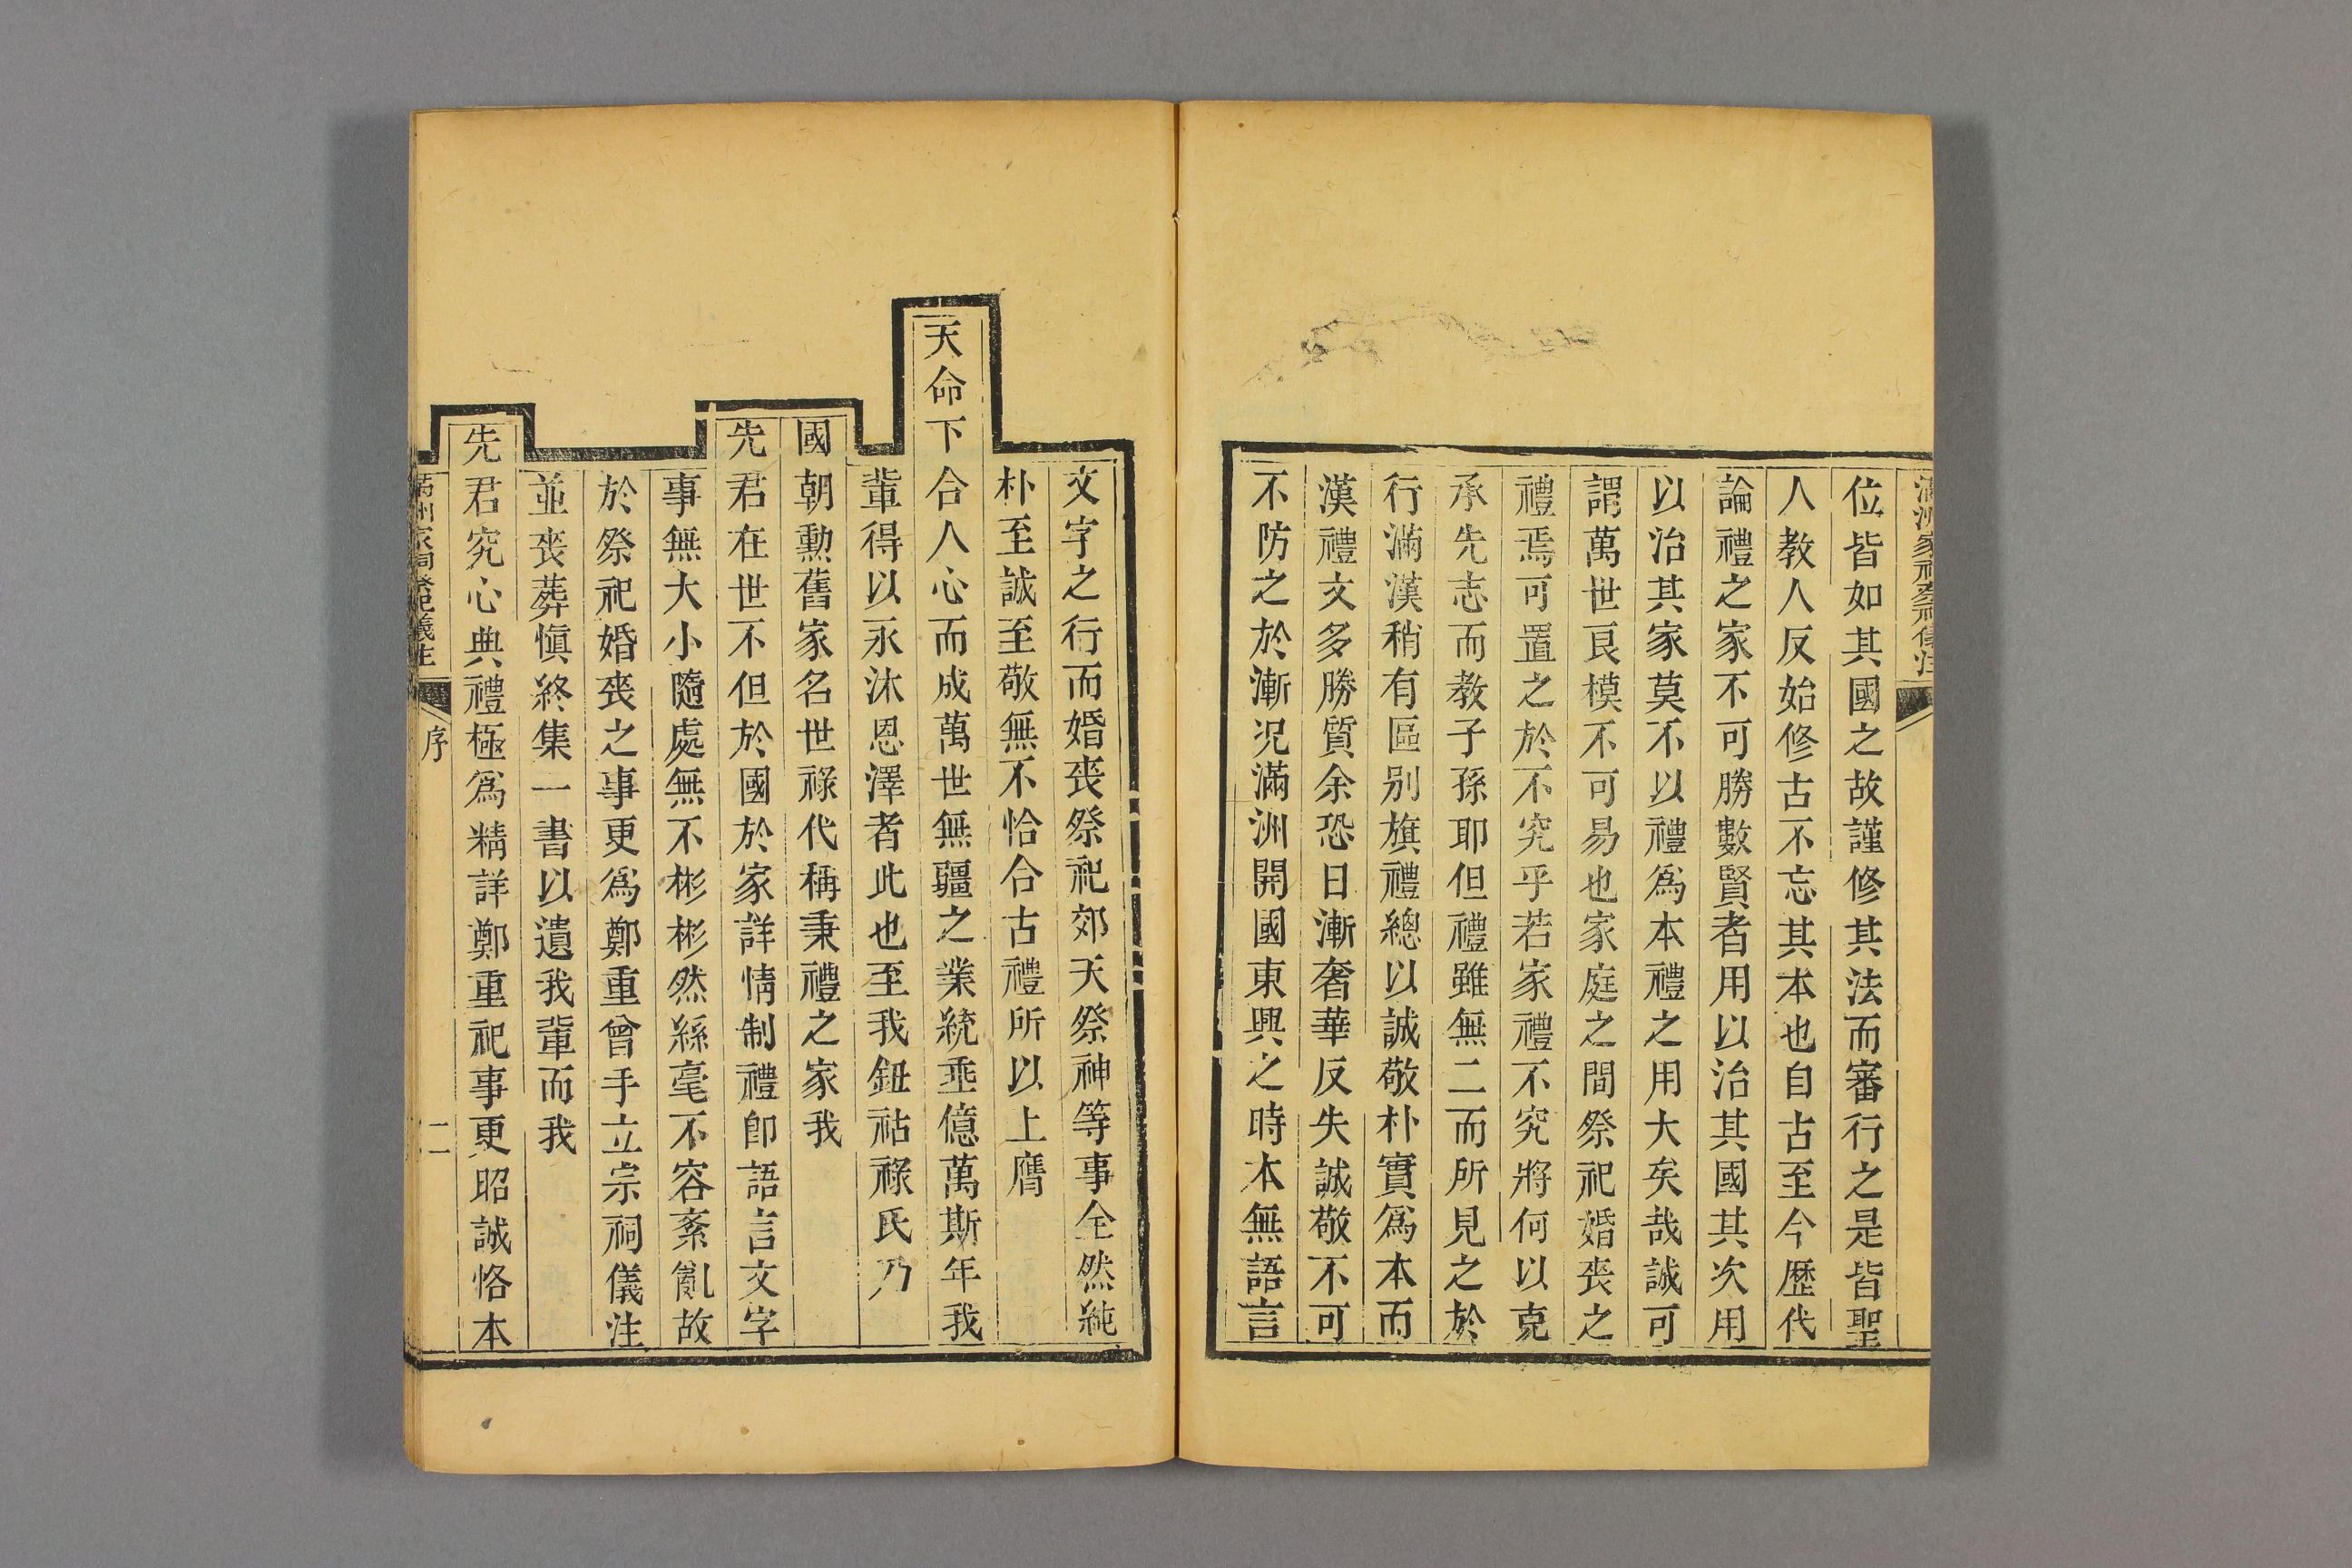 位皆如其國之故謹修其法而審行之是皆聖
人教人反始修古不忘其本也自古至今歷代
論禮之家不可勝數賢者用以治其國其次用
以治其家莫不以禮爲本禮之用大矣哉誠可
謂萬世良模不可易也家庭之間祭祀婚喪之
禮焉可置之於不究乎若家禮不究將何以克
承先志而教子孫耶但禮雖無二而所見之於
行滿漢稍有區别旗禮總以誠敬朴實爲本而
漢禮文多勝質余恐日漸奢華反失誠敬不可
不防之於漸况滿洲開國東興之時本無語言
文字之行而婚喪祭祀郊天祭神等事全然純
朴至誠至敬無不恰合古禮所以上膺
天命下合人心而成萬世無疆之業統垂億萬斯年我
輩得以永沐恩澤者此也至我鈕祜祿氏乃
國朝勳舊家名世祿代稱秉禮之家我
先君在世不但於國於家詳情制禮卽語言文字
事無大小隨處無不彬彬然絲毫不容紊亂故
於祭祀婚喪之事更爲鄭重曾手立宗祠儀注
並喪葬愼終集一書以遺我輩而我
先君究心典禮極爲精詳鄭重祀事更昭誠恪本
序
二